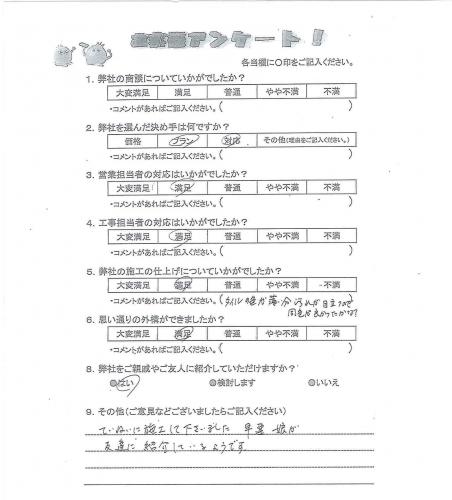 お客様アンケート!
各当欄に〇印をご記入ください。
1. 弊社の商談についていかがでしたか?
大変満足 満足 普通 やや不満 不満
・コメントがあればご記入ください。( )
2. 弊社を選んだ決め手は何ですか?
価格 プラン 対応 その他(理由をご記入ください。)
・コメントがあればご記入ください。( )
3. 営業担当者の対応はいかがでしたか?
大変満足 満足 普通 やや不満 不満
・コメントがあればご記入ください。( )
4. 工事担当者の対応はいかがでしたか?
大変満足 満足 普通 やや不満 不満
・コメントがあればご記入ください。( )
5. 弊社の施工の仕上げについていかがでしたか?
大変満足 満足 普通 やや不満 不満
・コメントがあればご記入ください。(タイル 汚れが目立つので
同色が良かったかな?
6. 思い通りの外構ができましたか?
大変満足 満足 普通 やや不満 不満
・コメントがあればご記入ください。( )
8. 弊社をご親戚やご友人に紹介していただけますか?
◎はい ◎検討します ◎いいえ
9. その他(ご意見などございましたらご記入ください)
ていねいに施工して下さいました 早速 娘が
友達に紹介しているようです。